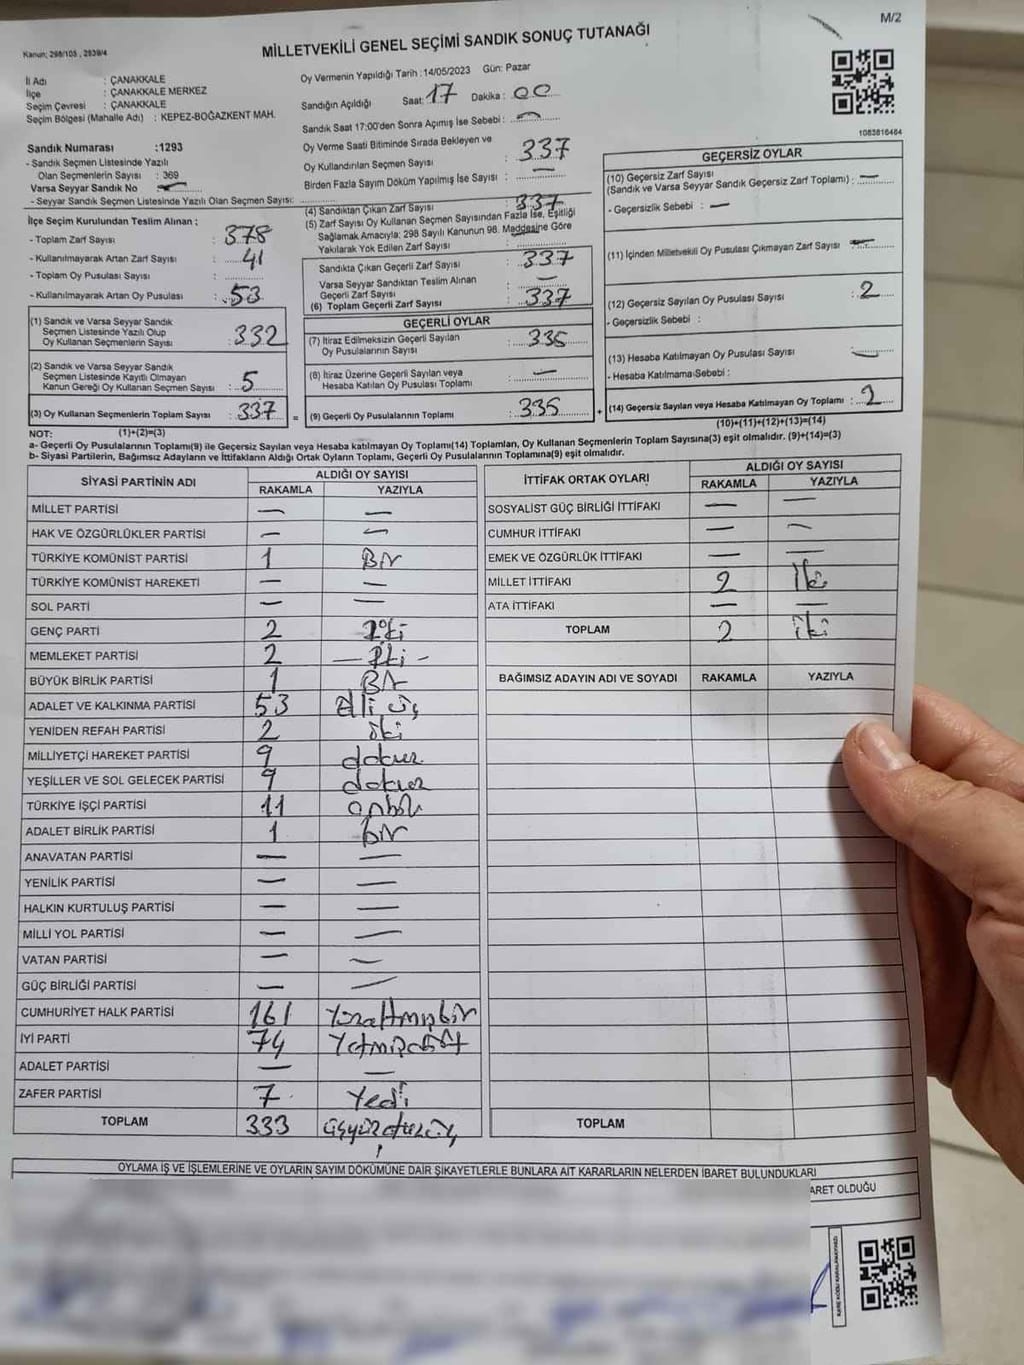 M/2
Kanun: 298/105 , 2839/4
MİLLETVEKİLİ GENEL SEÇİMİ SANDIK SONUÇ TUTANAĞI
İl Adı : ÇANAKKALE
İlçe : ÇANAKKALE MERKEZ
Seçim Çevresi : ÇANAKKALE
Seçim Bölgesi (Mahalle Adı) : KEPEZ-BOĞAZKENT MAH.
Sandık Numarası :1293
- Sandık Seçmen Listesinde Yazılı
Olan Seçmenlerin Sayısı : 369
Varsa Seyyar Sandık No
- Seyyar Sandık Seçmen Listesinde Yazılı Olan Seçmen Sayısı:
İlçe Seçim Kurulundan Teslim Alınan ;
- Toplam Zarf Sayısı : 378
- Kullanılmayarak Artan Zarf Sayısı : 41
- Toplam Oy Pusulası Sayısı :
- Kullanılmayarak Artan Oy Pusulası : 53
(1) Sandık ve Varsa Seyyar Sandık
Seçmen Listesinde Yazılı Olup
Oy Kullanan Seçmenlerin Sayısı : 332
(2) Sandık ve Varsa Seyyar Sandık
Seçmen Listesinde Kayıtlı Olmayan
Kanun Gereği Oy Kullanan Seçmen Sayısı : 5
(3) Oy Kullanan Seçmenlerin Toplam Sayısı : 337 =
Oy Vermenin Yapıldığı Tarih :14/05/2023 Gün: Pazar
Sandığın Açıldığı Saat: 17 Dakika: 00
Sandık Saat 17:00'den Sonra Açımış İse Sebebi : —
Oy Verme Saati Bitiminde Sırada Bekleyen ve
Oy Kullandırılan Seçmen Sayısı : 337
Birden Fazla Sayım Döküm Yapılmış İse Sayısı : —
(4) Sandıktan Çıkan Zarf Sayısı : 337
(5) Zarf Sayısı Oy Kullanan Seçmen Sayısından Fazla İse, Eşitliği
Sağlamak Amacıyla; 298 Sayılı Kanunun 98. Maddesine Göre
Yakılarak Yok Edilen Zarf Sayısı :
Sandıkta Çıkan Geçerli Zarf Sayısı : 337
Varsa Seyyar Sandıktan Teslim Alınan
Geçerli Zarf Sayısı : —
(6) Toplam Geçerli Zarf Sayısı : 337
GEÇERLİ OYLAR
(7) İtiraz Edilmeksizin Geçerli Sayılan
Oy Pusulalarının Sayısı : 335
(8) İtiraz Üzerine Geçerli Sayılan veya
Hesaba Katılan Oy Pusulası Toplamı : —
(9) Geçerli Oy Pusulalarının Toplamı : 335 +
1083816464
GEÇERSİZ OYLAR
(10) Geçersiz Zarf Sayısı
(Sandık ve Varsa Seyyar Sandık Geçersiz Zarf Toplamı) : —
- Geçersizlik Sebebi : —
(11) İçinden Milletvekili Oy Pusulası Çıkmayan Zarf Sayısı : —
(12) Geçersiz Sayılan Oy Pusulası Sayısı : 2
- Geçersizlik Sebebi :
(13) Hesaba Katılmayan Oy Pusulası Sayısı : —
- Hesaba Katılmama Sebebi :
(14) Geçersiz Sayılan veya Hesaba Katılmayan Oy Toplamı : 2
(10)+(11)+(12)+(13)=(14)
NOT: (1)+(2)=(3)
a- Geçerli Oy Pusulalarının Toplamı(9) ile Geçersiz Sayılan veya Hesaba katılmayan Oy Toplamı(14) Toplamları, Oy Kullanan Seçmenlerin Toplam Sayısına(3) eşit olmalıdır. (9)+(14)=(3)
b- Siyasi Partilerin, Bağımsız Adayların ve İttifakların Aldığı Ortak Oyların Toplamı, Geçerli Oy Pusulalarının Toplamına(9) eşit olmalıdır.
SİYASİ PARTİNİN ADI ALDIĞI OY SAYISI
RAKAMLA YAZIYLA
MİLLET PARTİSİ — —
HAK VE ÖZGÜRLÜKLER PARTİSİ — —
TÜRKİYE KOMÜNİST PARTİSİ 1 Bir
TÜRKİYE KOMÜNİST HAREKETİ — —
SOL PARTİ — —
GENÇ PARTİ 2 iki
MEMLEKET PARTİSİ 2 — iki —
BÜYÜK BİRLİK PARTİSİ 1 Bir
ADALET VE KALKINMA PARTİSİ 53 Elli üç
YENİDEN REFAH PARTİSİ 2 iki
MİLLİYETÇİ HAREKET PARTİSİ 9 dokuz
YEŞİLLER VE SOL GELECEK PARTİSİ 9 dokuz
TÜRKİYE İŞÇİ PARTİSİ 11 onbir
ADALET BİRLİK PARTİSİ 1 bir
ANAVATAN PARTİSİ — —
YENİLİK PARTİSİ — —
HALKIN KURTULUŞ PARTİSİ — —
MİLLİ YOL PARTİSİ — —
VATAN PARTİSİ — —
GÜÇ BİRLİĞİ PARTİSİ — —
CUMHURİYET HALK PARTİSİ 161 Yüzaltmışbir
İYİ PARTİ 74 Yetmişdört
ADALET PARTİSİ — —
ZAFER PARTİSİ 7 Yedi
TOPLAM 333 üçyüzotuzüç
İTTİFAK ORTAK OYLARI ALDIĞI OY SAYISI
RAKAMLA YAZIYLA
SOSYALİST GÜÇ BİRLİĞİ İTTİFAKI — —
CUMHUR İTTİFAKI — —
EMEK VE ÖZGÜRLÜK İTTİFAKI — —
MİLLET İTTİFAKI 2 iki
ATA İTTİFAKI — —
TOPLAM 2 iki
BAĞIMSIZ ADAYIN ADI VE SOYADI RAKAMLA YAZIYLA
TOPLAM
OYLAMA İŞ VE İŞLEMLERİNE VE OYLARIN SAYIM DÖKÜMÜNE DAİR ŞİKAYETLERLE BUNLARA AİT KARARLARIN NELERDEN İBARET BULUNDUKLARI
ARET OLDUĞU